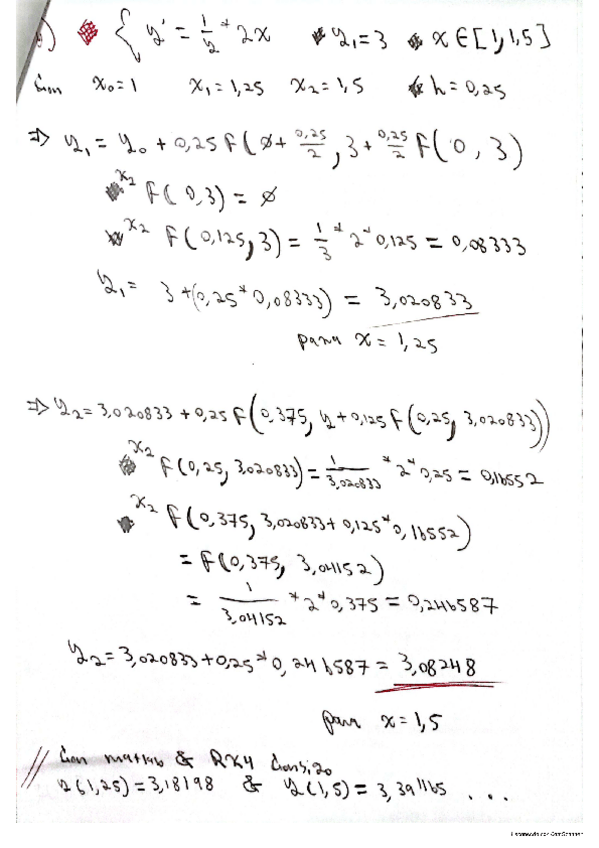 b) { y' = 1/y * 2x y1 = 3 x ∈ [1, 1,5]
Con x0=1 x1=1,25 x2=1,5 h=0,25
=> y1 = y0 + 0,25 f(0+ 0,25/2, 3+ 0,25/2 f(0, 3)
x2 f(0,3) = 0
x2 f(0,125, 3) = 1/3 * 2 * 0,125 = 0,08333
y1 = 3+(0,25*0,08333) = 3,020833
para x = 1,25
=> y2 = 3,020833 + 0,25 f(0,375, y+0,125 f(0,25, 3,020833))
x2 f(0,25, 3,020833) = 1/3,020833 * 2 * 0,25 = 0,16552
x2 f(0,375, 3,020833+0,125*0,16552)
= f(0,375, 3,04152)
= 1/3,04152 * 2 * 0,375 = 0,246587
y2 = 3,020833+0,25*0,246587 = 3,08248
para x = 1,5
// Con matlab & RK4 Consigo
y(1,25) = 3,18198 & y(1,5) = 3,391165 ...
Escaneado con CamScanner